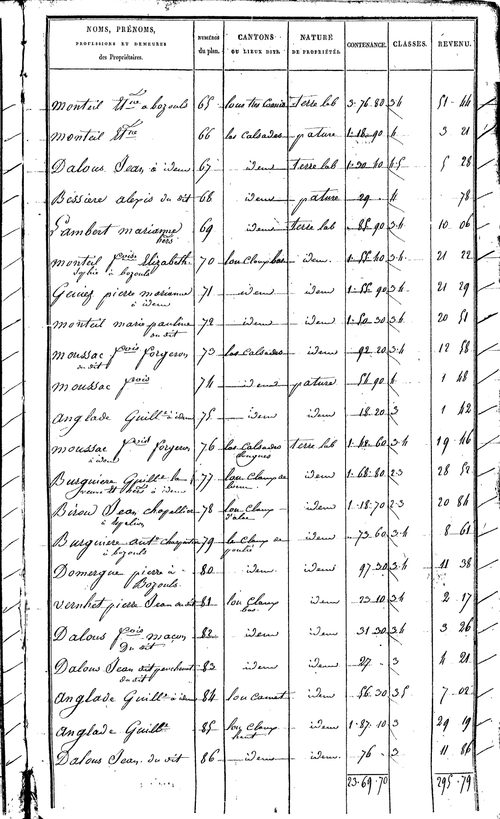 NOMS, PRÉNOMS,
PROFESSIONS ET DEMEURES
des Propriétaires.
NUMÉROS
du plan.
CANTONS
OU LIEUX DITS.
NATURE
DE PROPRIÉTÉS.
CONTENANCE.
CLASSES.
REVENU.
monteil Et.ne a bozouls 65 terre lab 3-76.80 3.4 51 44
monteil Et.ne 66 les Calsades pature 1-18.90 4 3 21
Dalous Jean à idem 67 idem terre lab 1-30.40 4.5 5 28
Bessière alexis du dit 68 idem pature 29 4 78
Lambert marianne 69 idem terre lab 85.90 3.4 10 06
monteil fcois Elizabeth 70 idem 1-55.40 3.4 21 22
à bozouls
pierre marianne 71 idem idem 1-55.90 3.4 21 29
à idem
monteil marie pauline 72 idem idem 1-50.30 3.4 20 51
du dit
moussac fcois forgeron 73 les Calsades idem 92.20 3.4 12 58
du dit
moussac fcois 74 idem pature 54.90 4 1 48
anglade Guill.e à idem 75 idem idem 18.20 3 1 42
moussac fcois forgeron 76 les Calsades terre lab 1-48.60 3.4 19 46
à idem longues
Burguiere Guill.e 77 lou Claux de idem 1-68.80 2.3 28 52
à idem
Jean 78 lou Claux idem 1-18.70 2.3 20 84
Burguiere ant.e charpentier 79 le Claux de idem 73.60 3.4 8 61
à bozouls
Domergue pierre à 80 idem idem 97.30 3.4 11 38
Bozouls
Vernhet pierre Jean du dit 81 lou Claux idem 23.10 3.4 2 17
bas
Dalous fcois maçon 82 idem idem 31.30 3.4 3 26
Du dit
Dalous Jean dit 83 idem idem 27. 3 4 21
du dit
anglade Guill.e à idem 84 idem 56.30 3.5 7 02
anglade Guill.e 85 lou Claux idem 1-87.10 3 29 19
haut
Dalous Jean du dit 86 idem idem 76 3 11 86
23.69.70 295.79